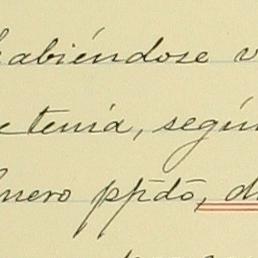 habiéndose v
e tenía, según
nero ppdo, d